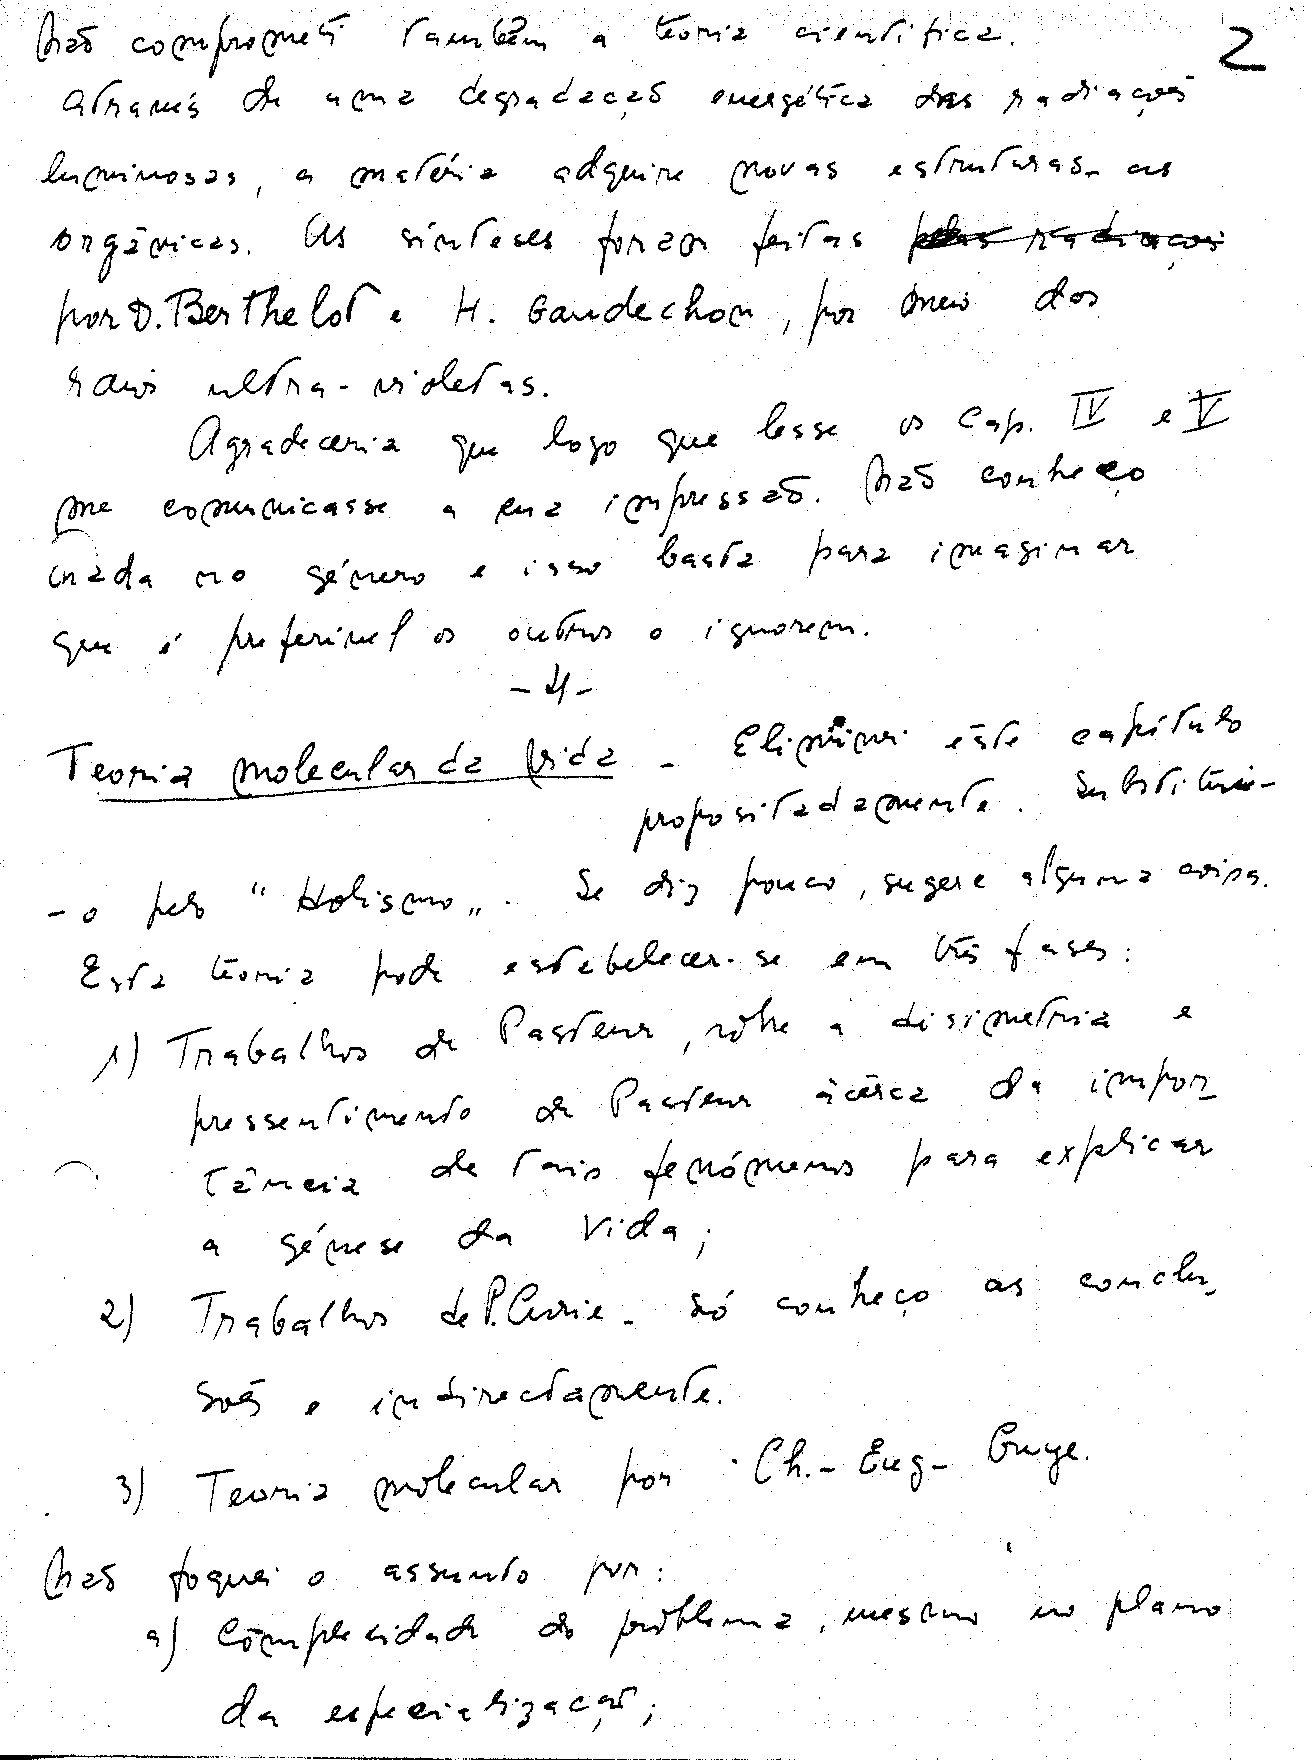 2
Não comprometi também a teoria científica.
Através de uma degradação energética das radiações
luminosas, a matéria adquire novas estruturas - as
orgânicas. As sínteses foram feitas pelas radiações
por D. Berthelot e H. Gaudechon, por meio dos
raios ultra-violetas.
Agradeceria que logo que lesse os Cap. IV e V
me comunicasse a sua impressão. Não conheço
nada no género e isso basta para imaginar
que é preferível os outros o ignorem.
- 4 -
Teoria molecular da Vida - Eliminei êste capítulo
propositadamente. Substitui-
-o pelo "Holismo". Se diz pouco, sugere alguma coisa.
Esta teoria pode estabelecer-se em três fases:
1) Trabalhos de Pasteur, sôbre a disimetria e
pressentimento de Pasteur àcêrca da impor
tância de tais fenómenos para explicar
a génese da Vida;
2) Trabalhos de P. Curie - só conheço as conclu-
sões e indirectamente.
3) Teoria molecular por Ch. - Eug - Guye.
Não foquei o assunto por:
a) Complexidade do problema, mesmo no plano
da especialização;